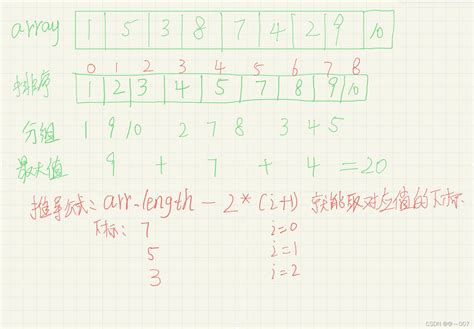 array 1 5 3 8 7 4 2 9 10
0 1 2 3 4 5 6 7 8
排序 1 2 3 4 5 7 8 9 10
分组 1 9 10 2 7 8 3 4 5
最大值 9 + 7 + 4 =20
推导公式: arr.length - 2*(i+1) 就能取对应值的下标
下标: 7 i=0
5 i=1
3 i=2
CSDN @中一007